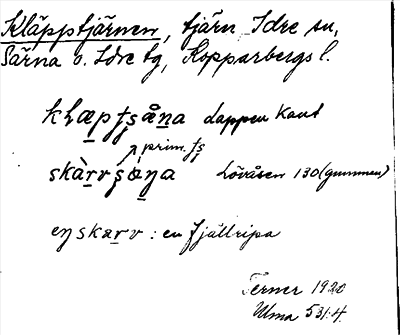 Kläpptjärnen, tjärn Idre sn,
Särna o. Idre tg, Kopparbergs l.
kḷæpt̠s̠å̠na Lappen Kant
↗ prim. t̠s̠
skàrvs̠å̠ŋa Lövåsen 130 (gumman)
eŋ skarv : en fjällripa
Terner 1920
Ulma 531:4.